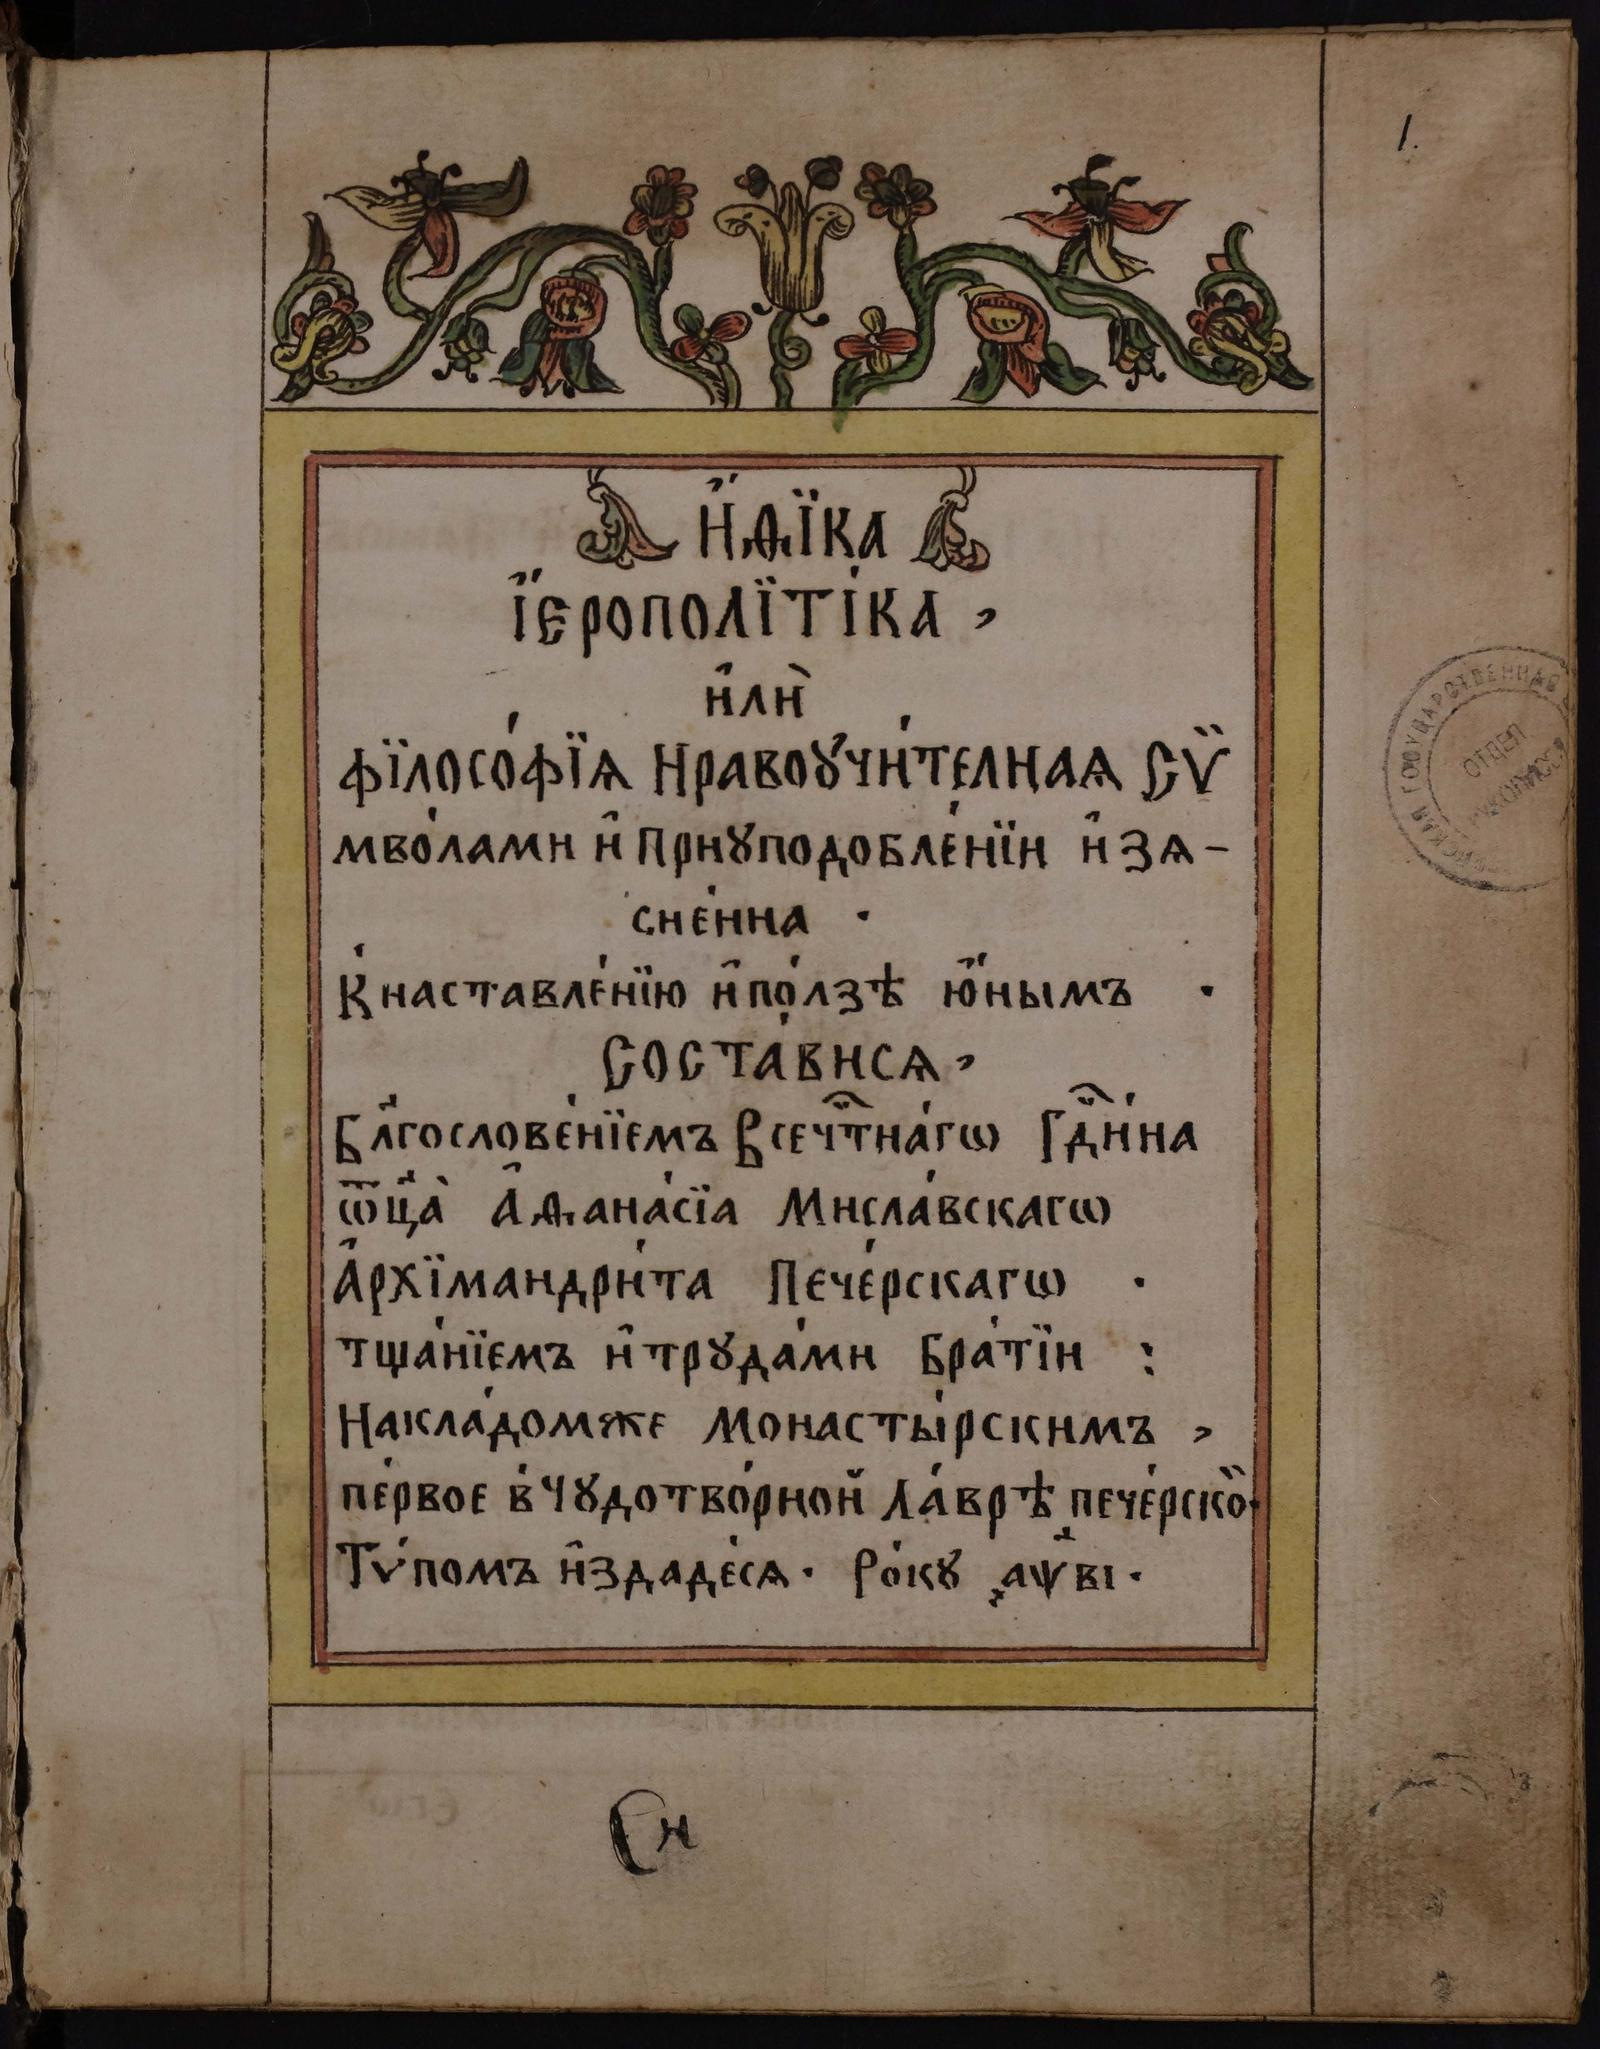 1.
И҆́ѳїка
І҆єрополїті́ка,
и҆лѝ
Фїлосо́фїѧ Нравоꙋчи́телнаѧ Сѵ̈
мво́лами и҆ Приꙋподобле́нїи и҆зѧ-
сне́нна ·
К наставле́нїю и҆ по́лзѣ ю҆́нымъ ·
Соста́висѧ,
Блⷭ҇гослове́нїемъ Всечⷭ҇тна́гѡ Гдⷭ҇и́на
ѿца̀ А҆ѳана́сїа Мисла́вскагѡ
А҆рхїмандри́та Пече́рскагѡ ·
тща́нїемъ и҆ трꙋда́ми Бра́тїи :
Накла́домже Монасты́рскимъ ,
пе́рвое в Чꙋдотво́рной Ла́врѣ пече́рско̀й
Тѵ́помъ и҆здаде́сѧ · Ро́кꙋ ҂аѱв҃і ·
ГОСУДАРСТВЕННАЯ
ОТДЕЛ
РУКОПИСЕЙ